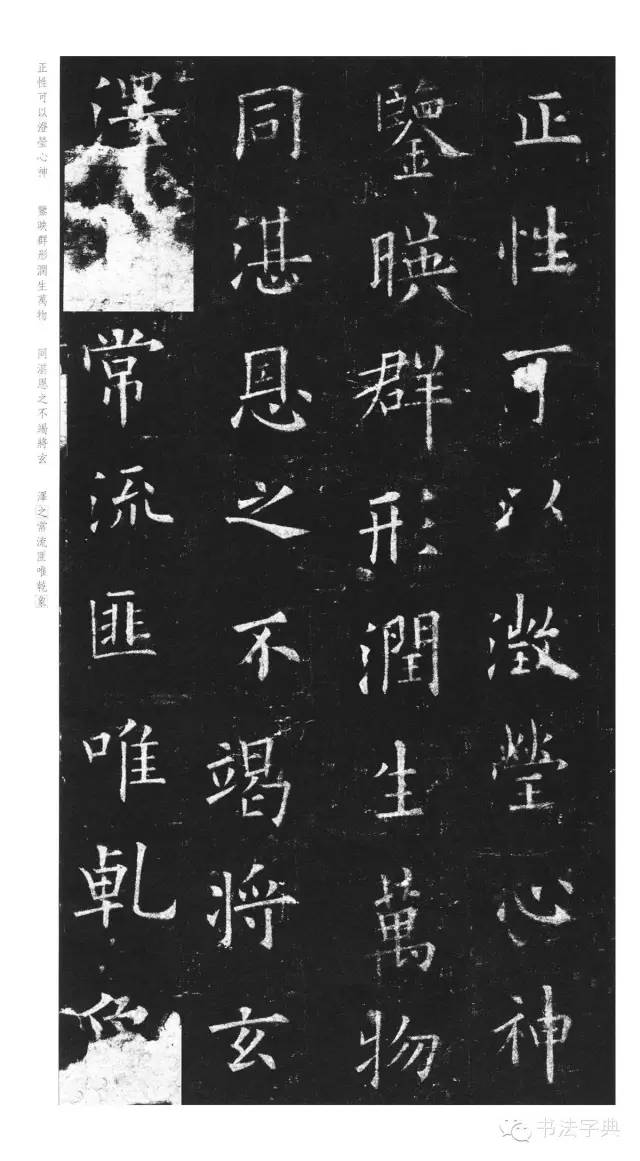 正性可以澂瑩心神
鑒暎群形潤生萬物
同湛恩之不竭將玄
澤常流匪唯乹
正性可以澄瑩心神 鑒映群形潤生萬物 同湛恩之不竭將玄 澤之常流匪唯乾象
书法字典